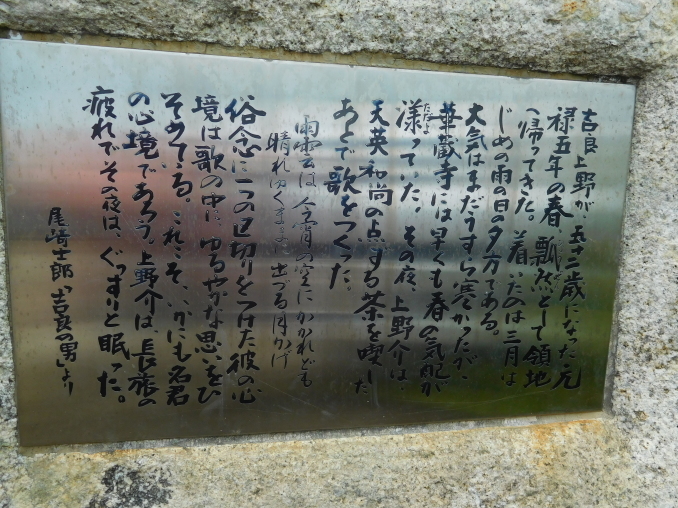 吉良上野が、五十二歳になった元
禄五年の春、瓢然として領地
へ帰ってきた。着いたのは三月は
じめの雨の日の夕方である。
大気はまだうすら寒かったが、
華蔵寺には早くも春の気配が
漾っていた。その夜、上野介は、
ただよ
天英和尚の点する茶を喫した
あとで歌をつくった。
雨雲は今宵の空にかかれども
晴れゆくまゝに出づる月かげ
俗念に一つの区切りをつけた彼の心
境は歌の中に、ゆるやかな思いをひ
そめている。これこそ、いかにも名君
の心境であろう。上野介は、長旅の
疲れでその夜は、ぐっすりと眠った。
尾崎士郎「吉良の男」より